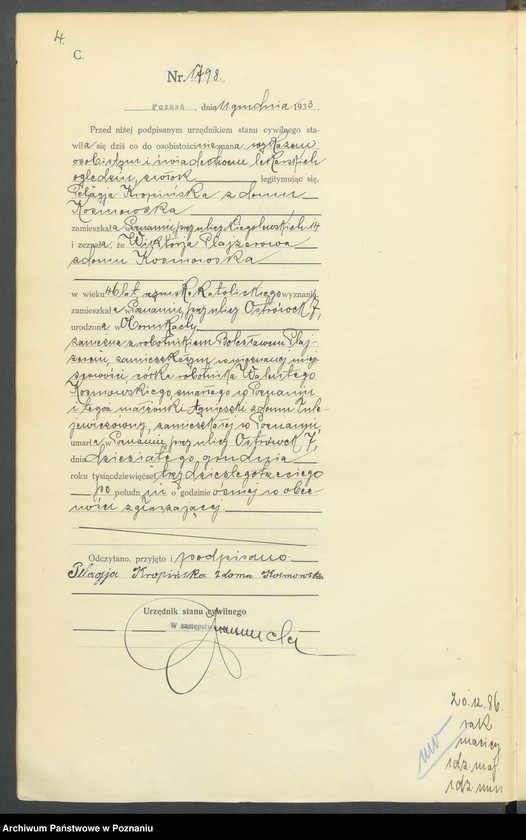 4.
C.
Nr. 1798.
Poznań, dnia 11 grudnia 1933
Przed niżej podpisanym urzędnikiem stanu cywilnego sta-
wiła się dziś co do osobistości nieznana, wykazem
osobistym i świadectwem lekarskich
oględzin, zwłok legitymując się,
Pelagja Kropińska z domu
Kosmowska
zamieszkała w Poznaniu, przy ulicy Niegolewskich 14
i zeznała, że Wiktorja Plajzerowa
z domu Kosmowska
w wieku 46 lat rzymsko katolickiego wyznania,
zamieszkała w Poznaniu, przy ulicy Ostrówek 7,
urodzona w
zamężna z robotnikiem Bolesławem Plaj-
zerem, zamieszkałym w
córka robotnika Walentego
Kosmowskiego, zmarłego w Poznaniu
i tegoż małżonki Agnieszki z domu
zamieszkałej w Poznaniu,
umarła w Poznaniu, przy ulicy Ostrówek 7,
dnia dziesiątego grudnia
roku tysiącdziewięćset trzydziestego trzeciego
po połudn iu o godzinie ósmej w obec-
ności zgłaszającej.
Odczytano, przyjęto i podpisano.
Pelagja Kropińska z domu Kosmowska
Urzędnik stanu cywilnego
W zastępstwie
20.12.86
rak
macicy
1 dz. maj
1 dz.
Archiwum Państwowe w Poznaniu